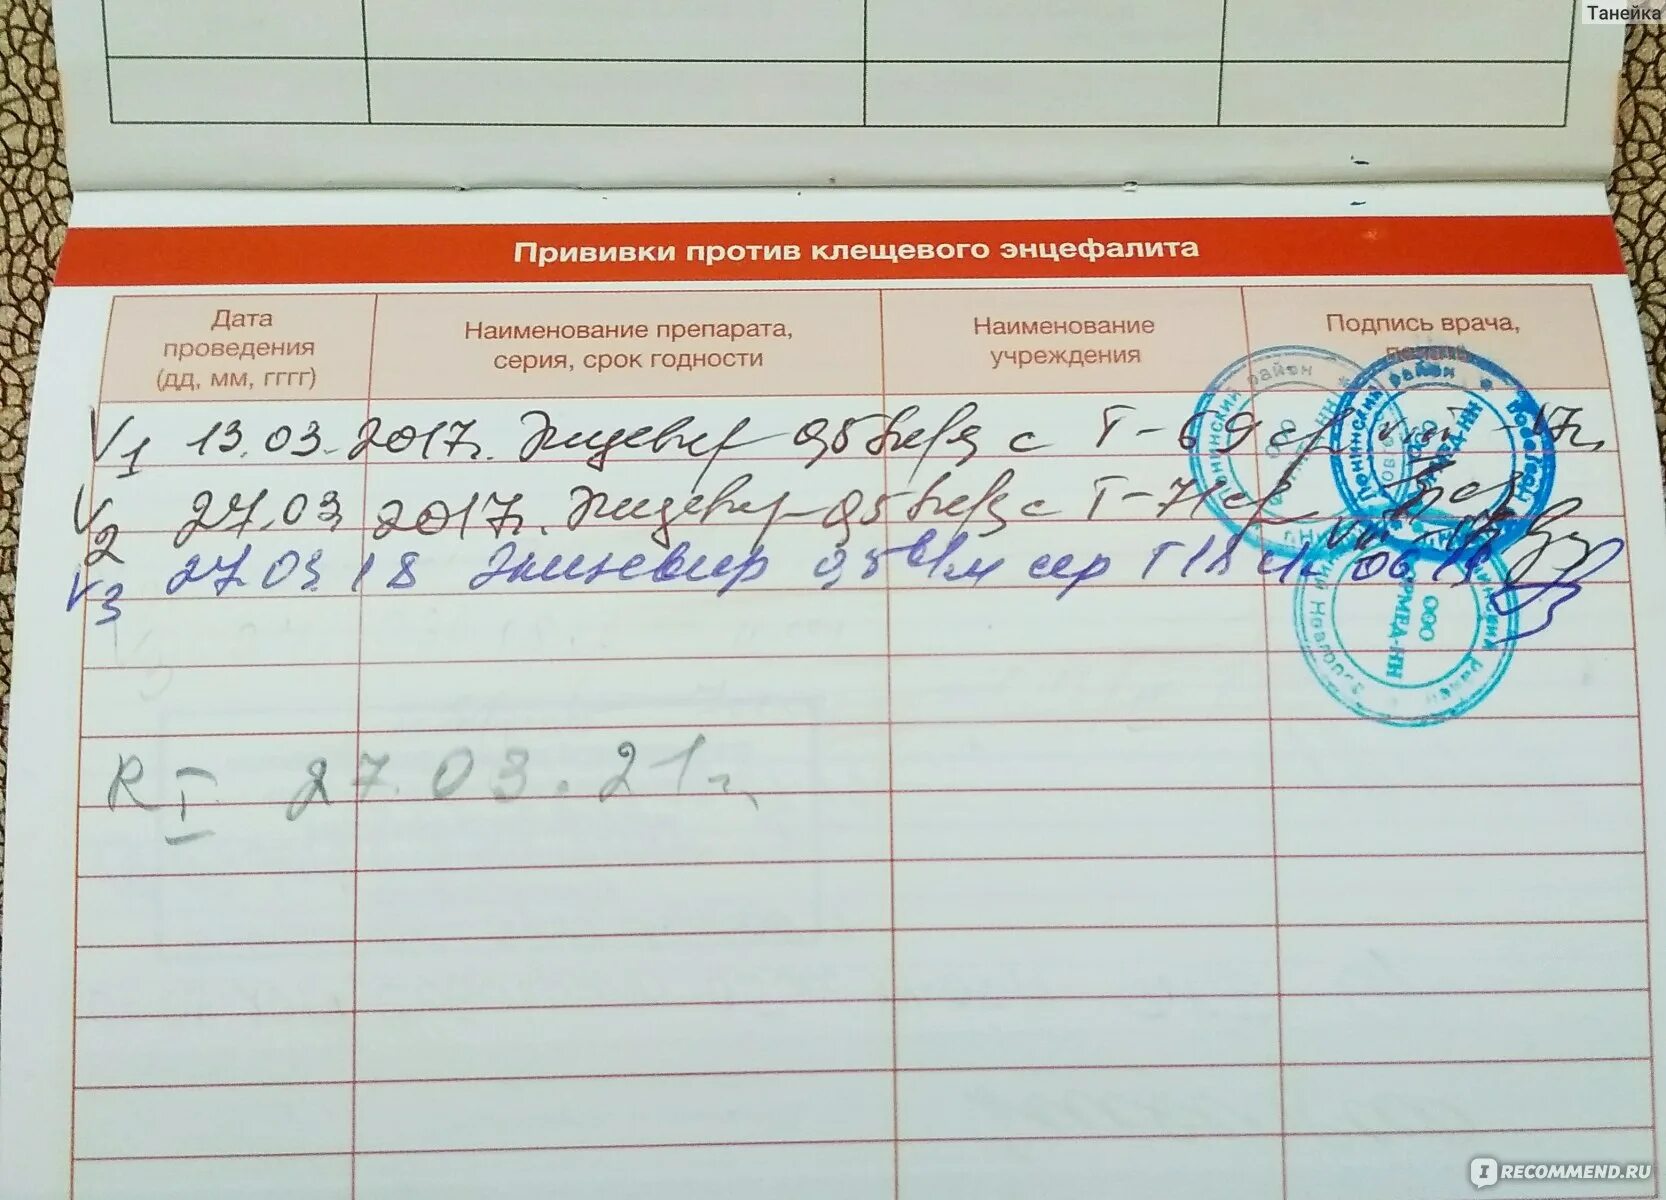 Танейка
Прививки против клещевого энцефалита
Дата проведения (дд, мм, гггг)
Наименование препарата, серия, срок годности
Наименование учреждения
Подпись врача,
V1 13.03.2017г. Энцевир 0,5 с Т-69 сер
V2 27.03 2017г. Энцевир 0,5 с Т-71 сер
V3 27 03 18 Энцевир 0,5 в/м сер Т18 06 19
RI 27.03.21г.
Ленинский район
Ленинский район
ООО
ООО
IRECOMMEND.RU